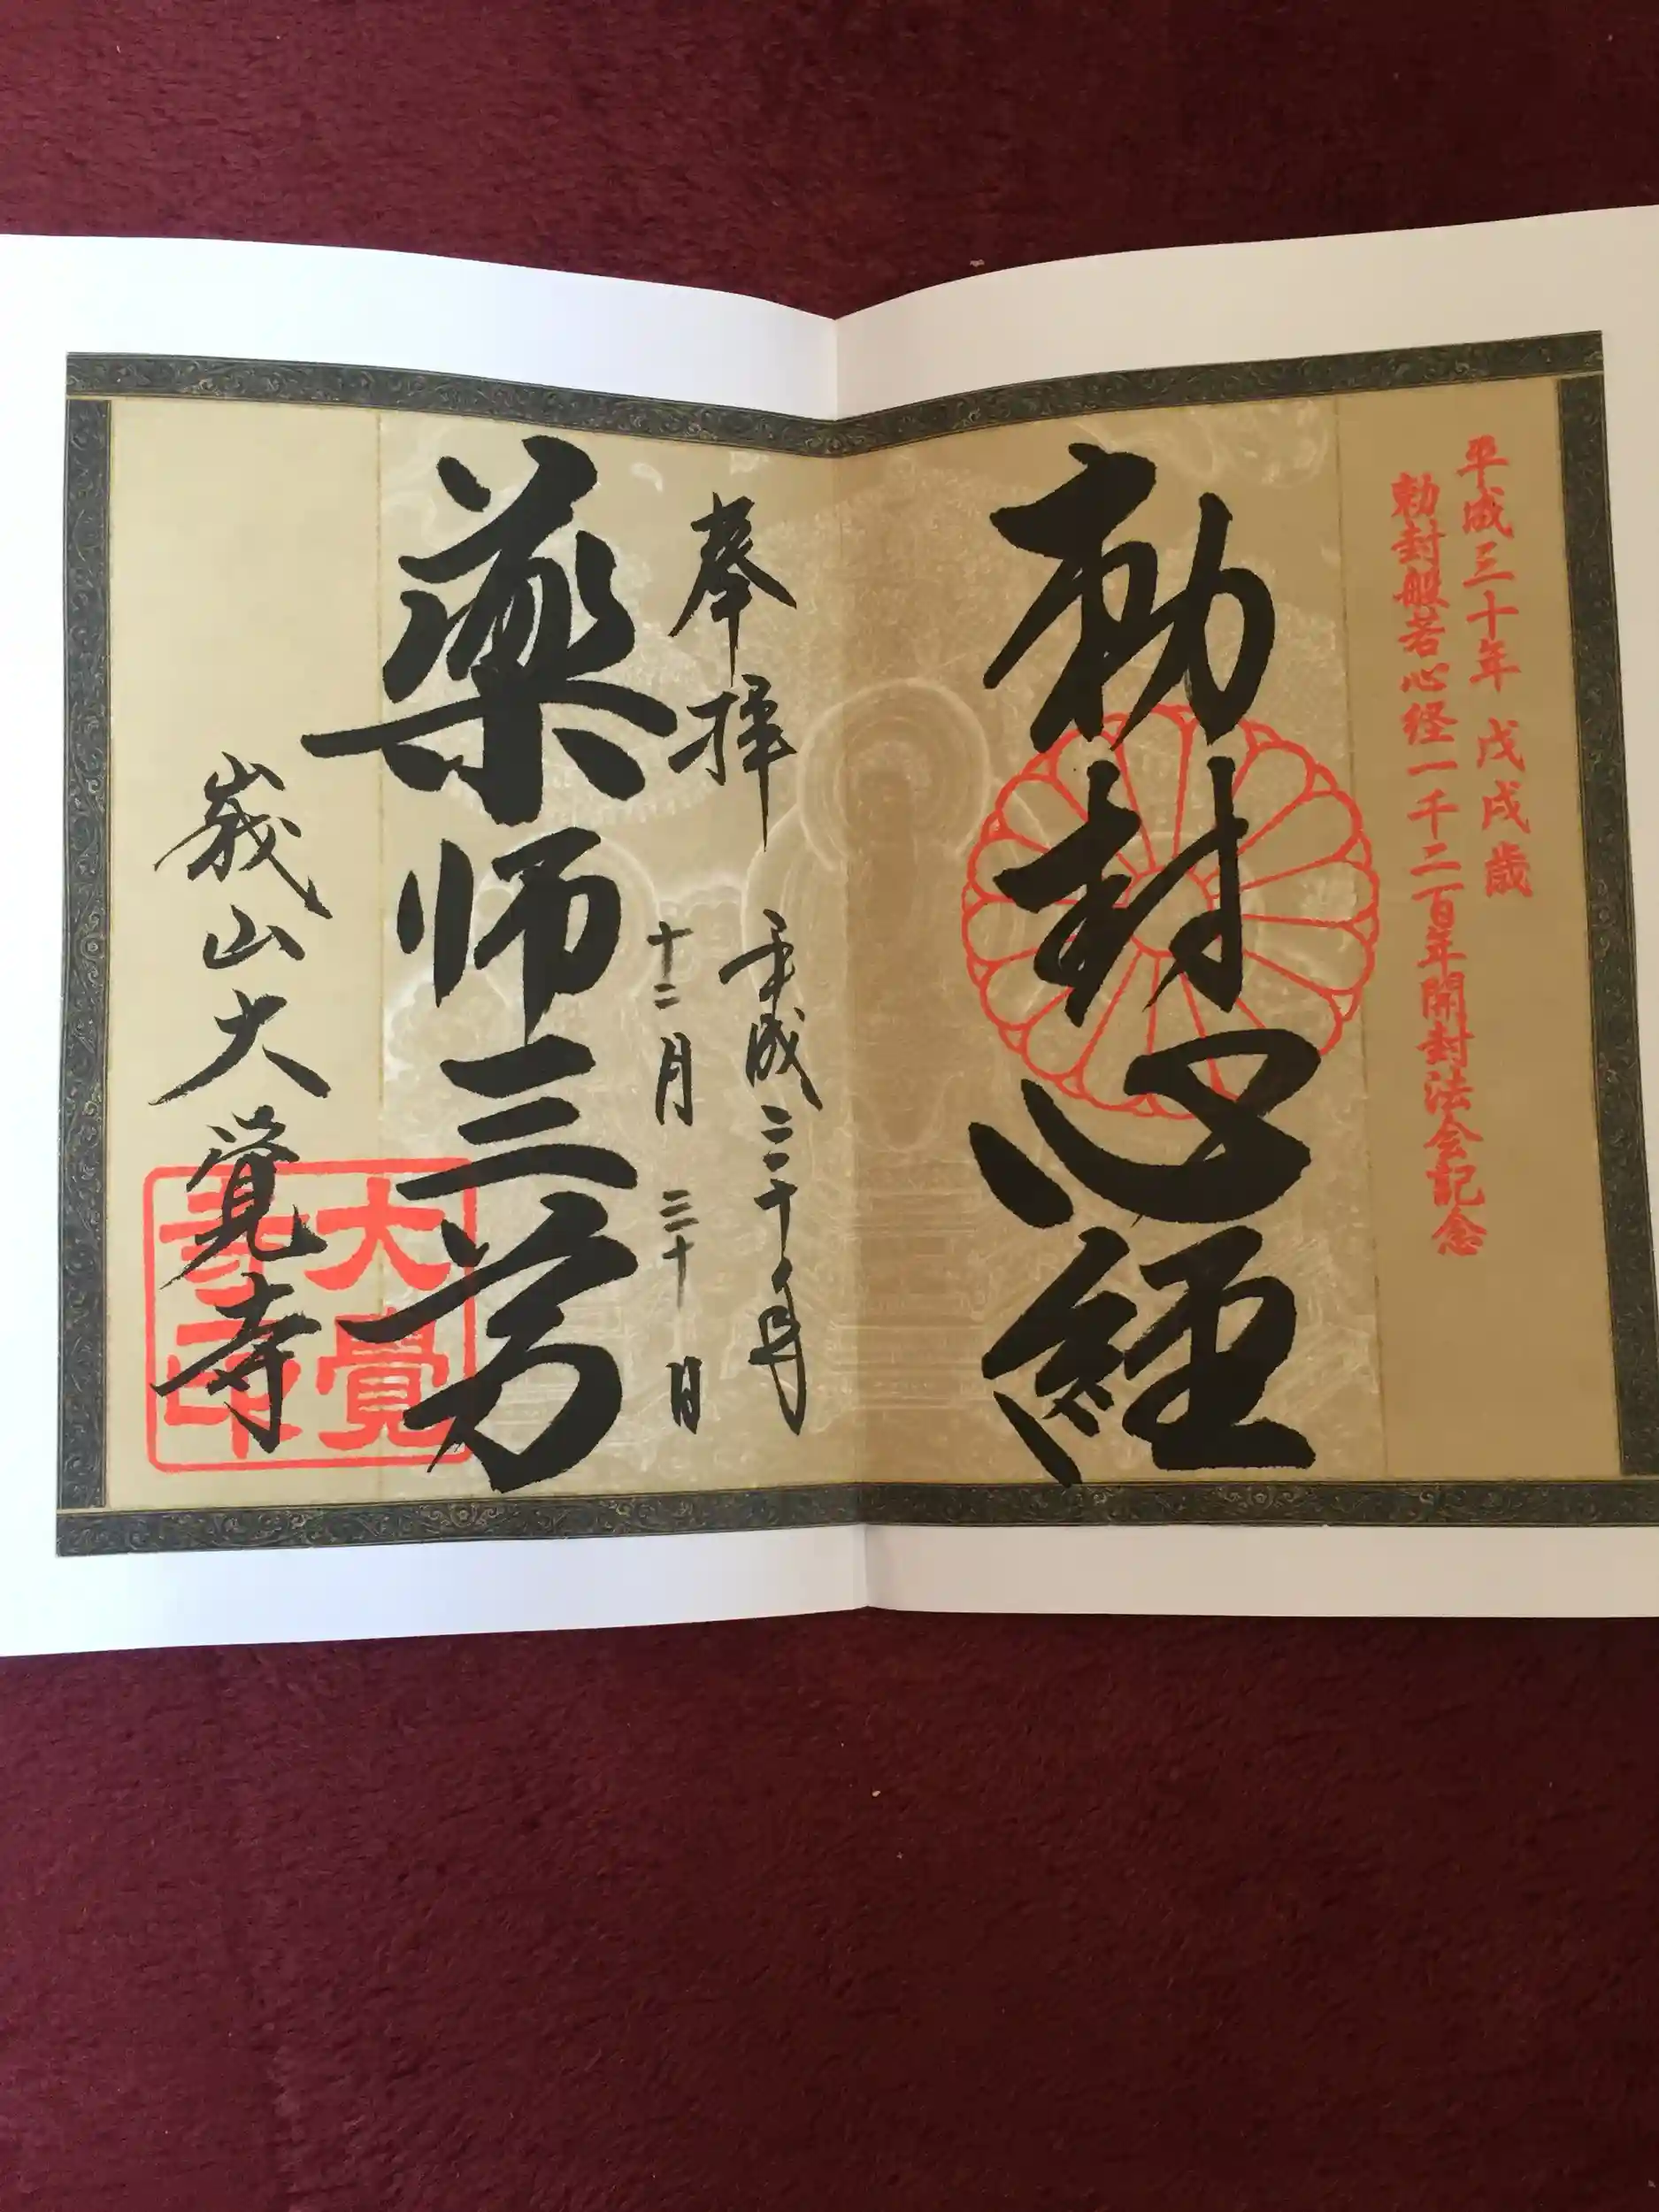 平成三十年 戊戌歳
勅封般若心経一千二百年開封法会記念
勅封心経
奉拝
平成三十年
十二月 三十日
薬师三尊
嵯山大覚寺
大覺
寺印